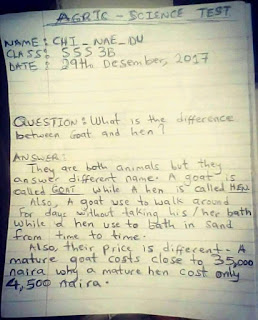 AGRIC - SCIENCE TEST
NAME: CHI_NAE_DU
CLASS: SSS3B
DATE: 29th Desember, 2017
QUESTION: What is the difference
between Goat and hen?
ANSWER:
They are both animals but they
answer different name. A goat is
called GOAT while A hen is called HEN
Also, A goat use to walk around
for days without taking his/her bath
while a hen use to bath in sand
from time to time.
Also, their price is different. A
mature goat costs close to 35,000
naira why a mature hen cost only
4,500 naira.